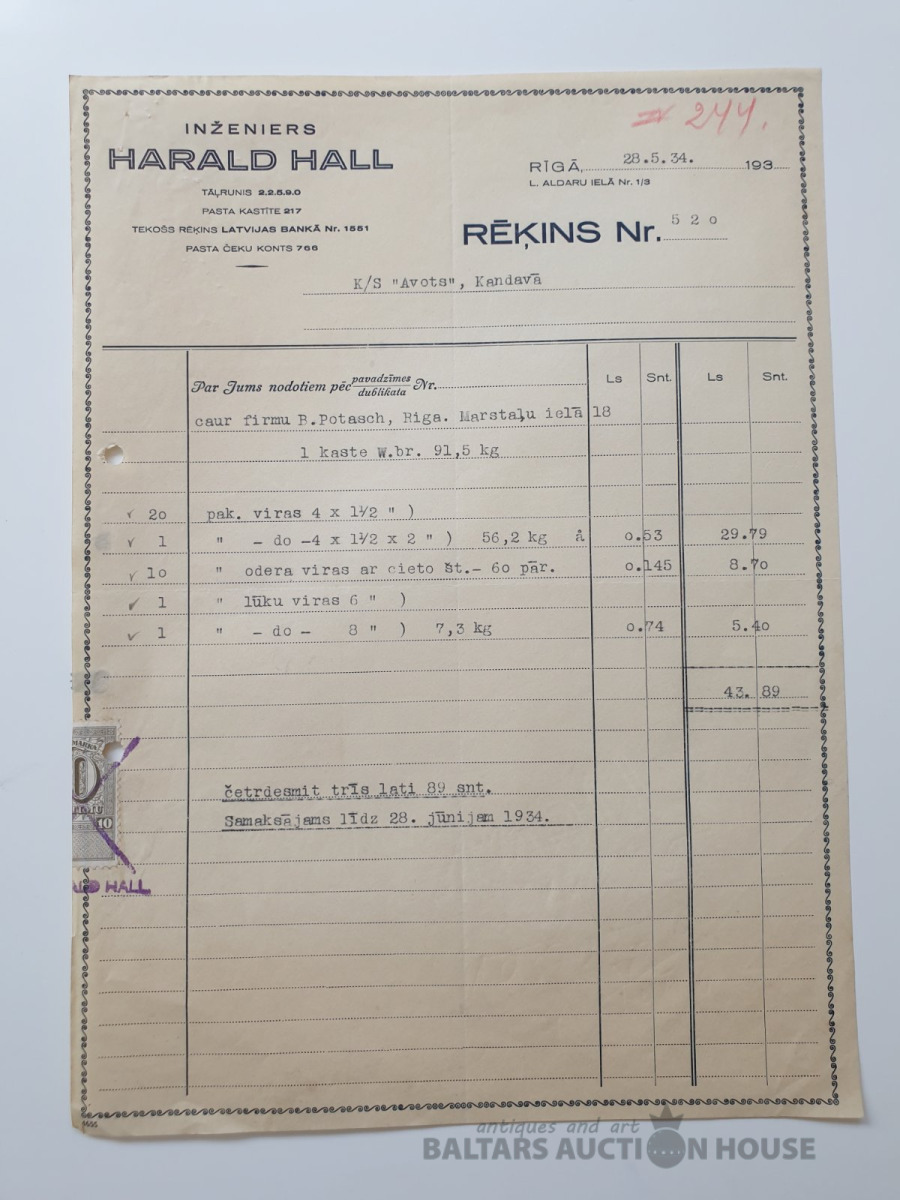 INŽENIERS
HARALD HALL
TĀĻRUNIS 2.2.5.9.0
PASTA KASTĪTE 217
TEKOŠS RĒĶINS LATVIJAS BANKĀ Nr. 1551
PASTA ČEKU KONTS 766
244.
RĪGĀ, 28.5.34. 193
L. ALDARU IELĀ Nr. 1/3
RĒĶINS Nr. 520
K/S "Avots", Kandavā
Par Jums nodotiem pēc pavadzīmes dublikata Nr. Ls Snt. Ls Snt.
caur firmu B.Potasch, Riga. Marstaļu ielā 18
1 kaste W.br. 91,5 kg
20 pak. viras 4 x 1 1/2 " )
1 " - do -4 x 1 1/2 x 2 " ) 56,2 kg å 0.53 29.79
10 " odera viras ar cieto št.- 60 pār. 0.145 8.70
1 " lūku viras 6 " )
1 " - do - 8 " ) 7,3 kg 0.74 5.40
43. 89
četrdesmit trīs lati 89 snt.
Samaksājams līdz 28. jūnijam 1934.
MARKA
10
HALL
antiques and art
BALTARS AUCTION HOUSE